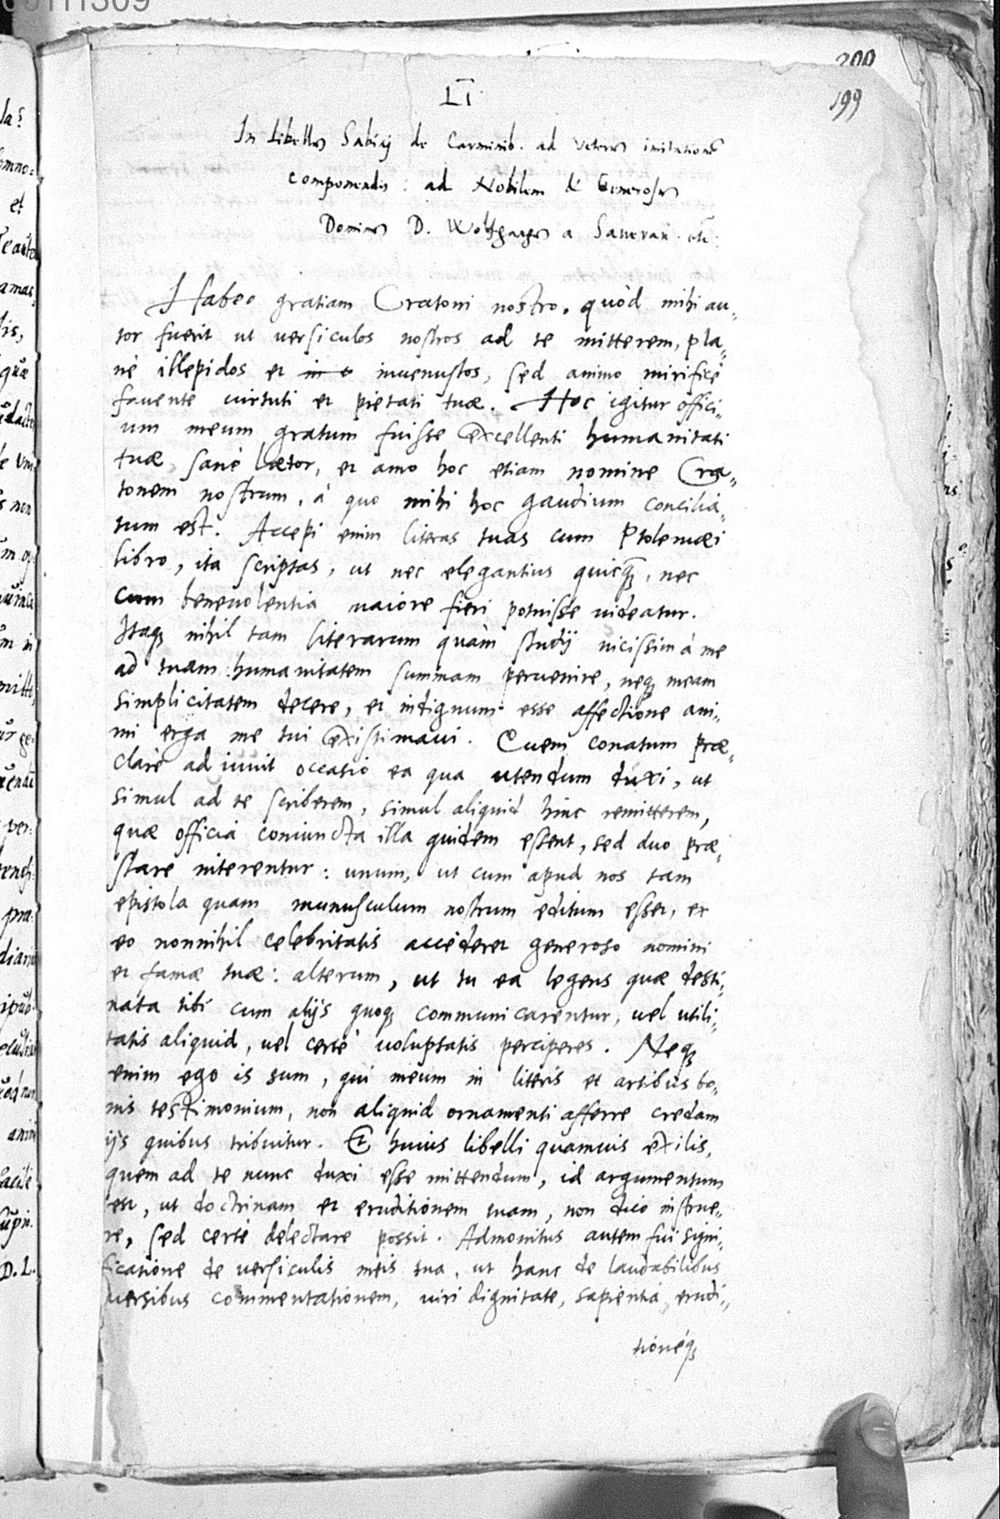 200
199
LI
In libellū Sabinj de Carminib. ad veterū imitationē
componendis: ad Nobilem & Generosū
Dominū D. Wolfgangū a Saurau. etc.
Habeo gratiam Cratoni nostro, quòd mihi au-
tor fuerit ut versiculos nostros ad te mitterem, pla-
nè illepidos et inuenustos, sed animo mirificè
fauente uirtuti et pietati tuæ. Hoc igitur offici-
um meum gratum fuisse excellenti humanitati
tuæ, sanè lætor, et amo hoc etiam nomine Cra-
tonem nostrum, à quo mihi hoc gaudium concilia-
tum est. Accepi enim literas tuas cum Ptolemæi
libro, ita scriptas, ut nec elegantius quicq̃, nec
cum beneuolentia maiore fieri potuisse uideatur.
Itaq; nihil tam literarum quàm studij uicissim à me
ad tuam humanitatem summam peruenire, neq; meam
simplicitatem decere, et indignum esse affectione ani-
mi erga me tui existimaui. Quem conatum præ-
clarè adiuuit occasio ea qua utendum duxi, ut
simul ad te scriberem, simul aliquid hinc remitterem,
quæ officia coniuncta illa quidem essent, sed duo præ-
stare niterentur: unum, ut cum apud nos tam
epistola quam munusculum nostrum editum esset, et
eo nonnihil celebritatis accederet generoso nomini
et famæ tuæ: alterum, ut tu ea legens quæ desti-
nata tibi cum alijs quoq; communicarentur, uel utili-
tatis aliquid, uel certè uoluptatis perciperes. Neq;
enim ego is sum, qui meum in literis et artibus bo-
nis testimonium, non aliquid ornamenti afferre credam
ijs quibus tribuitur. Et huius libelli quamuis exilis,
quem ad te nunc duxi esse mittendum, id argumentum
est, ut doctrinam et eruditionem tuam, non dico instrue-
re, sed certè delectare possit. Admonitus autem fui signi-
ficatione de uersiculis meis tua, ut hanc de laudabilibus
uersibus commentationem, uiri dignitate, sapientia, erudi-
tioneq;